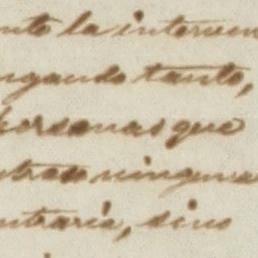 nto la interven
ngando tanto,
personas que
ntras ninguna
ntraria, sino